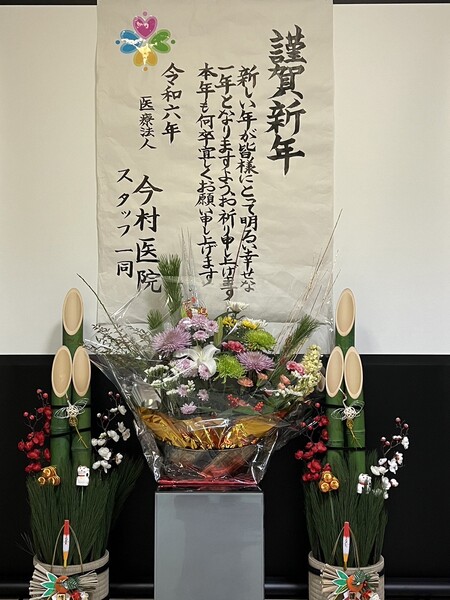 謹賀新年
新しい年が皆様にとって明るい幸せな
一年となりますようお祈り申し上げます
本年も何卒宜しくお願い申し上げます
令和六年
医療法人
今村医院
スタッフ一同